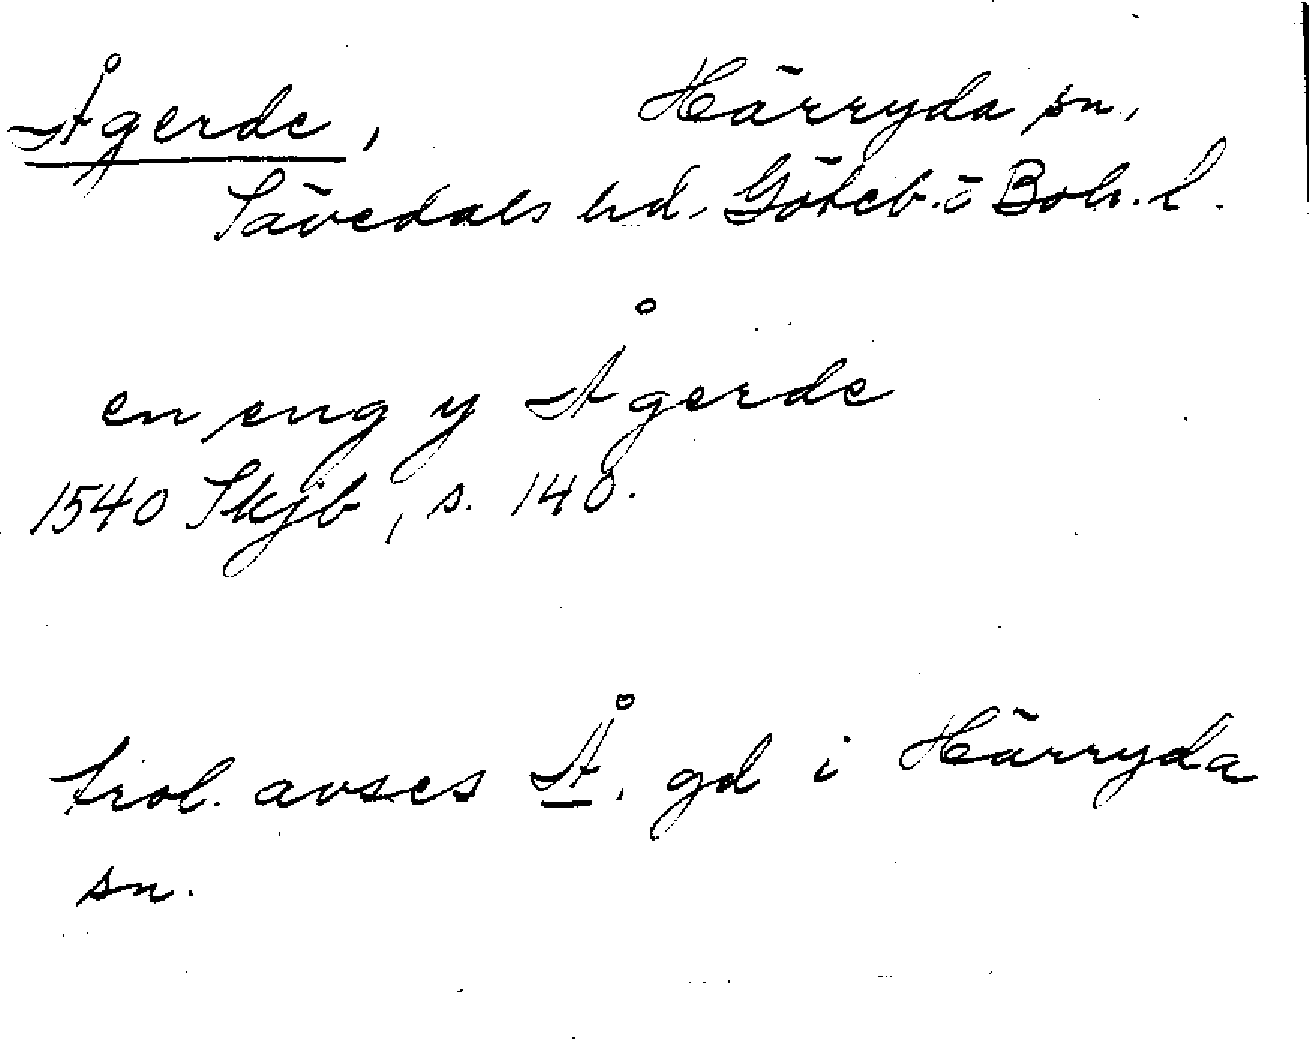 Ågerde, Härryda sn,
Sävedals hd, Göteb. o Boh. l.
en eng y Ågerde
1540 Skjb, s. 140.
trol. avses Å, gd i Härryda
sn.